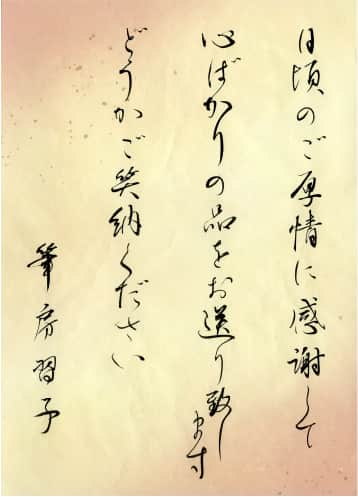 日頃のご厚情に感謝して
心ばかりの品をお送り致します
どうかご笑納ください
筆房習子